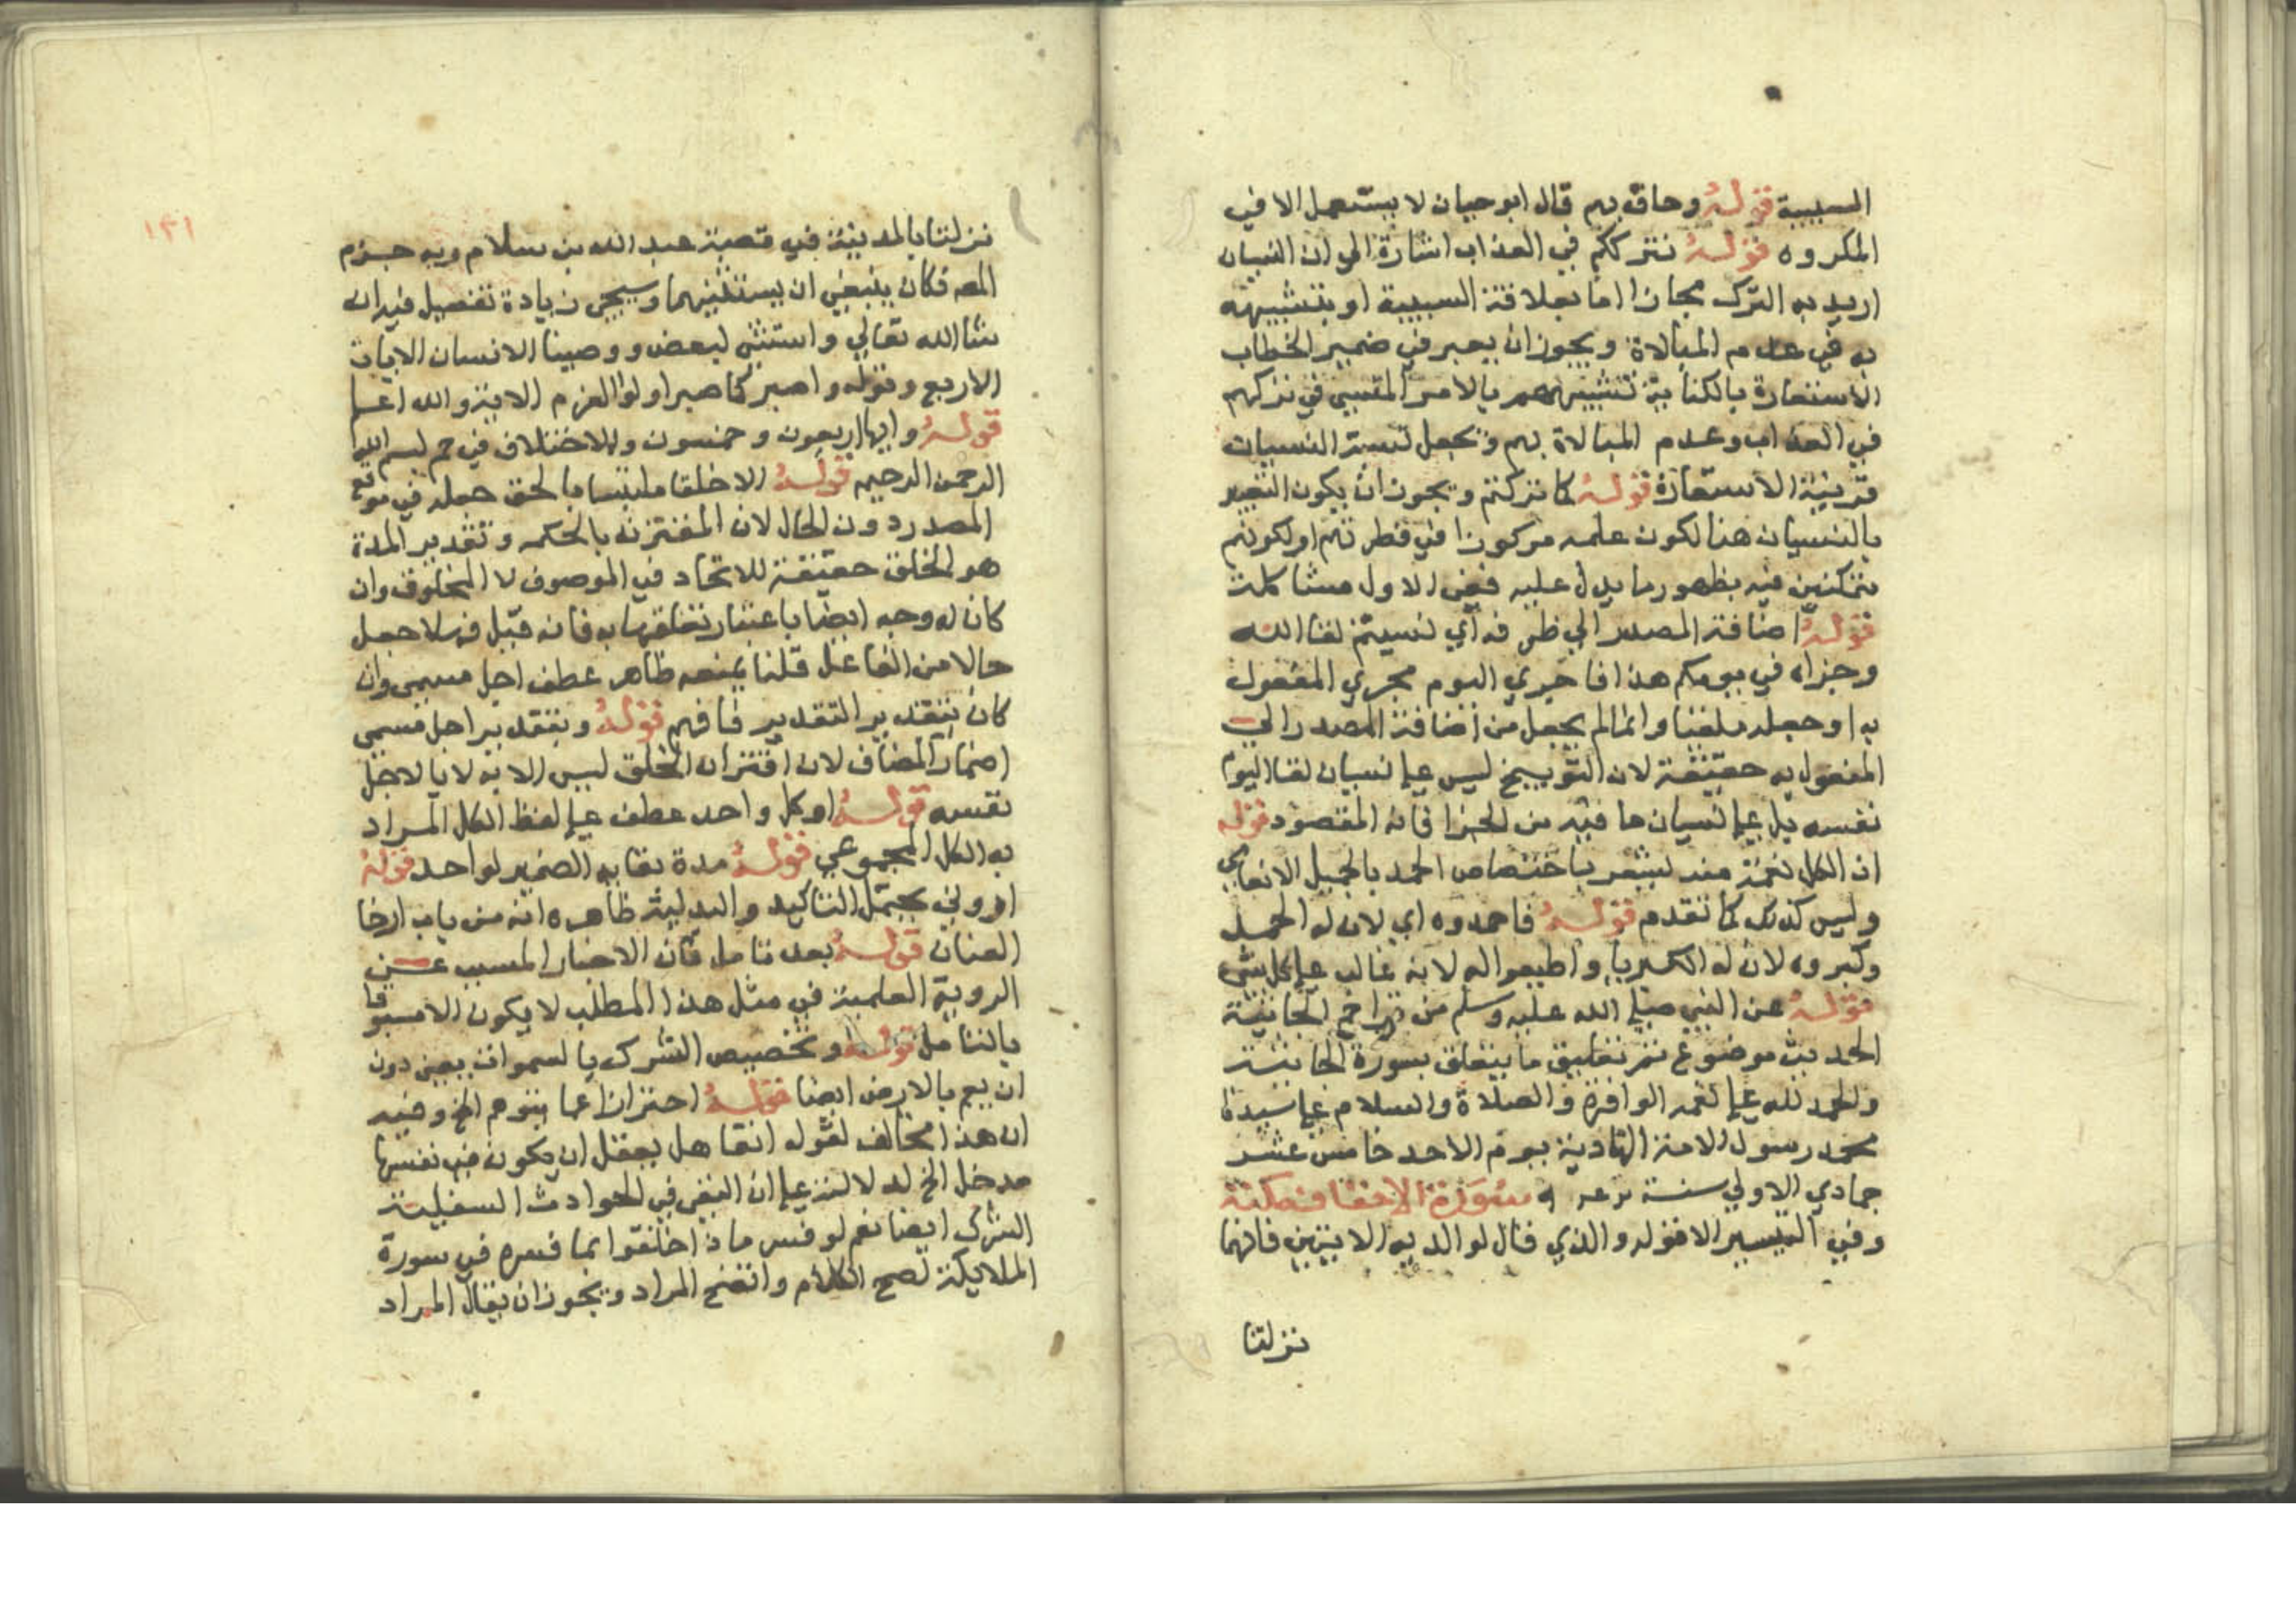 السببية قوله وحاق بهم قال ابو حيان لا يستعمل الا في
المكروه قوله نترككم في العذاب اشارة الى ان النسيان
اريد به الترك مجازا اما بعلاقة السببية او بتشبيهه
به في عدم المبالاة ويجوز ان يعبر في ضمير الخطاب
الاستعارة بالكناية تشبيههم بالامر المنسي في تركهم
في العذاب وعدم المبالاة بهم وتجعل نسبة النسيان
قرينة الاستعارة قوله كما تركتم ويجوز ان يكون التعبير
بالنسيان هنا لكون علمه مركوزا في فطرتهم او لكونهم
متمكنين منه بظهور ما يدل عليه ففي الاول مشاكلة
قوله اضافة المصدر الي ظرفه اي نسيتم لقا الله
وجزاه في يومكم هذا فاجري اليوم مجري المفعول
به اوجعله ملقيا وانما لم يجعل من اضافة المصدر الي
المفعول به حقيقة لان التوبيخ ليس علي نسيان لقا اليوم
نفسه بل علي نسيان ما فيه من الجزا فانه المقصود قوله
اذ الكل نعمة منه ليشعر باختصاص الحمد بالجميل الانعامي
وليس كذلك كما تقدم قوله فاحمدوه اي لان له الحمد
وكبروه لان له الكبريا واطيعوا له لانه غالب علي كل شي
قوله عن النبي صلي الله عليه وسلم من قرا حم الجاثية
الحديث موضوع تم تعليق ما يتعلق بسورة الجاثية
والحمد لله علي نعمه الوافرة والصلاة والسلام علي سيدنا
محمد رسول الامة الهادية يوم الاحد خامس عشر
جمادي الاولي سنة سورة الاحقاف مكية
وفي التيسير الا قوله والذي قال لوالديه الايتين فانهما
نزلتا
١٣١
نزلتا بالمدينة في قصة عبد الله بن سلام وبه جزم
المص فكان ينبغي ان يستثنيهما وسيجي زيادة تفصيل فيه ان
شا الله تعالي واستثنى لبعض ووصينا الانسان الايات
الاربع وقوله واصبر كما صبر اولوا العزم الاية والله اعلم
قوله وايها اربعون وخمسون وللاختلاف في حم بسم الله
الرحمن الرحيم قوله الا خلقا ملتبسا بالحق جعله في موقع
المصدر دون الحال لان المقترن بالحكمه وتقدير المدة
هو الخلق حقيقة للاتحاد في الموصوف لا المخلوق وان
كان له وجه ايضا باعتبار تعلقها به فانه قيل فهلا جعل
حالا من الفاعل قلنا يمنعه ظاهر عطف اجل مسمي وان
كان بتقدير التقدير فافهم قوله وبتقدير اجل مسمي
اضمار المضاف لان اقتران الخلق ليس الا به لا بالاجل
نفسه قوله او كل واحد عطف علي لفظ الكل المراد
به الكل المجموعي قوله مدة بقايه الضمير لواحد قوله
اروني يحتمل التاكيد والبدلية ظاهره انه من باب ارخا
العنان قوله بعد تامل فان الاخبار المسبب عن
الروية العلمية في مثل هذا المطلب لا يكون الا مسبوقا
بالتامل قوله وتخصيص الشرك بالسموات يعني دون
ان يعم بالارض ايضا قوله احترازا عما يتوهم الخ وفيه
ان هذا مخالف لقوله انفا هل يعقل ان يكون في نفسها
مدخل الخ لدلالته علي ان النفي في الحوادث السفلية
الشرك ايضا نعم لو فسر ماذا خلقوا بما فسره في سورة
الملايكة لصح الكلام واتضح المراد ويجوز ان يقال المراد